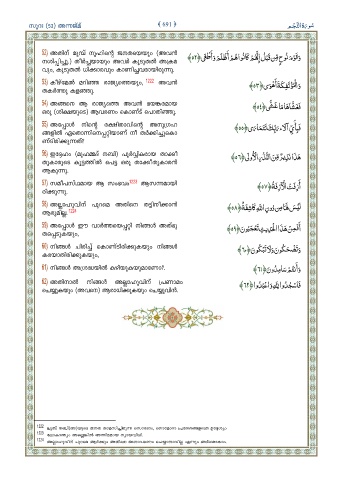 സൂറ: (53) അന്നജ്മ് ﴾ 691 ﴿ سُورَةُ النَّجْم
52) അതിന് മുമ്പ് നൂഹിന്റെ ജനതയെയും (അവൻ
നശിപ്പിച്ചു.) തീർച്ചയായും അവർ കൂടുതൽ അക്രമ
വും, കൂടുതൽ ധിക്കാരവും കാണിച്ചവരായിരുന്നു.
وَقَوْمَ نُوحٍ مِّن قَبْلُ إِنَّهُمْ كَانُوا هُمْ أَظْلَمَ وَأَطْغَى ﴿٥٢﴾
53) കീഴ്മേൽ മറിഞ്ഞ രാജ്യത്തെയും, 1122 അവൻ
തകർത്തു കളഞ്ഞു.
وَالْمُؤْتَفِكَةَ أَهْوَى ﴿٥٣﴾
54) അങ്ങനെ ആ രാജ്യത്തെ അവൻ ഭയങ്കരമായ
ഒരു (ശിക്ഷയുടെ) ആവരണം കൊണ്ട് പൊതിഞ്ഞു.
فَغَشَّاهَا مَا غَشَّى ﴿٥٤﴾
55) അപ്പോൾ നിന്റെ രക്ഷിതാവിന്റെ അനുഗ്രഹ
ങ്ങളിൽ ഏതൊന്നിനെപ്പറ്റിയാണ് നീ തർക്കിച്ചുകൊ
ണ്ടിരിക്കുന്നത്?
فَبِأَيِّ آلَاءِ رَبِّكَ تَتَمَارَى ﴿٥٥﴾
56) ഇദ്ദേഹം (മുഹമ്മദ് നബി) പൂർവ്വികരായ താക്കീ
തുകാരുടെ കൂട്ടത്തിൽ പെട്ട ഒരു താക്കീതുകാരൻ
ആകുന്നു.
هَذَا نَذِيرٌ مِّنَ النُّذُرِ الْأُولَى ﴿٥٦﴾
57) സമീപസ്ഥമായ ആ സംഭവം1123 ആസന്നമായി
രിക്കുന്നു.
أَزِفَتِ الْآزِفَةُ ﴿٥٧﴾
58) അല്ലാഹുവിന് പുറമെ അതിനെ തട്ടിനീക്കാൻ
ആരുമില്ല.1124
لَيْسَ لَهَا مِن دُونِ اللَّهِ كَاشِفَةٌ ﴿٥٨﴾
59) അപ്പോൾ ഈ വാർത്തയെപ്പറ്റി നിങ്ങൾ അത്ഭു
തപ്പെടുകയും,
أَفَمِنْ هَذَا الْحَدِيثِ تَعْجَبُونَ ﴿٥٩﴾
60) നിങ്ങൾ ചിരിച്ച് കൊണ്ടിരിക്കുകയും നിങ്ങൾ
കരയാതിരിക്കുകയും,
وَتَضْحَكُونَ وَلَا تَبْكُونَ ﴿٦٠﴾
61) നിങ്ങൾ അശ്രദ്ധയിൽ കഴിയുകയുമാണോ?.
وَأَنتُمْ سَامِدُونَ ﴿٦١﴾
62) അതിനാൽ നിങ്ങൾ അല്ലാഹുവിന് പ്രണാമം
ചെയ്യുകയും (അവനെ) ആരാധിക്കുകയും ചെയ്യുവിൻ.
فَاسْجُدُوا لِلَّهِ وَاعْبُدُوا ﴿٦٢﴾